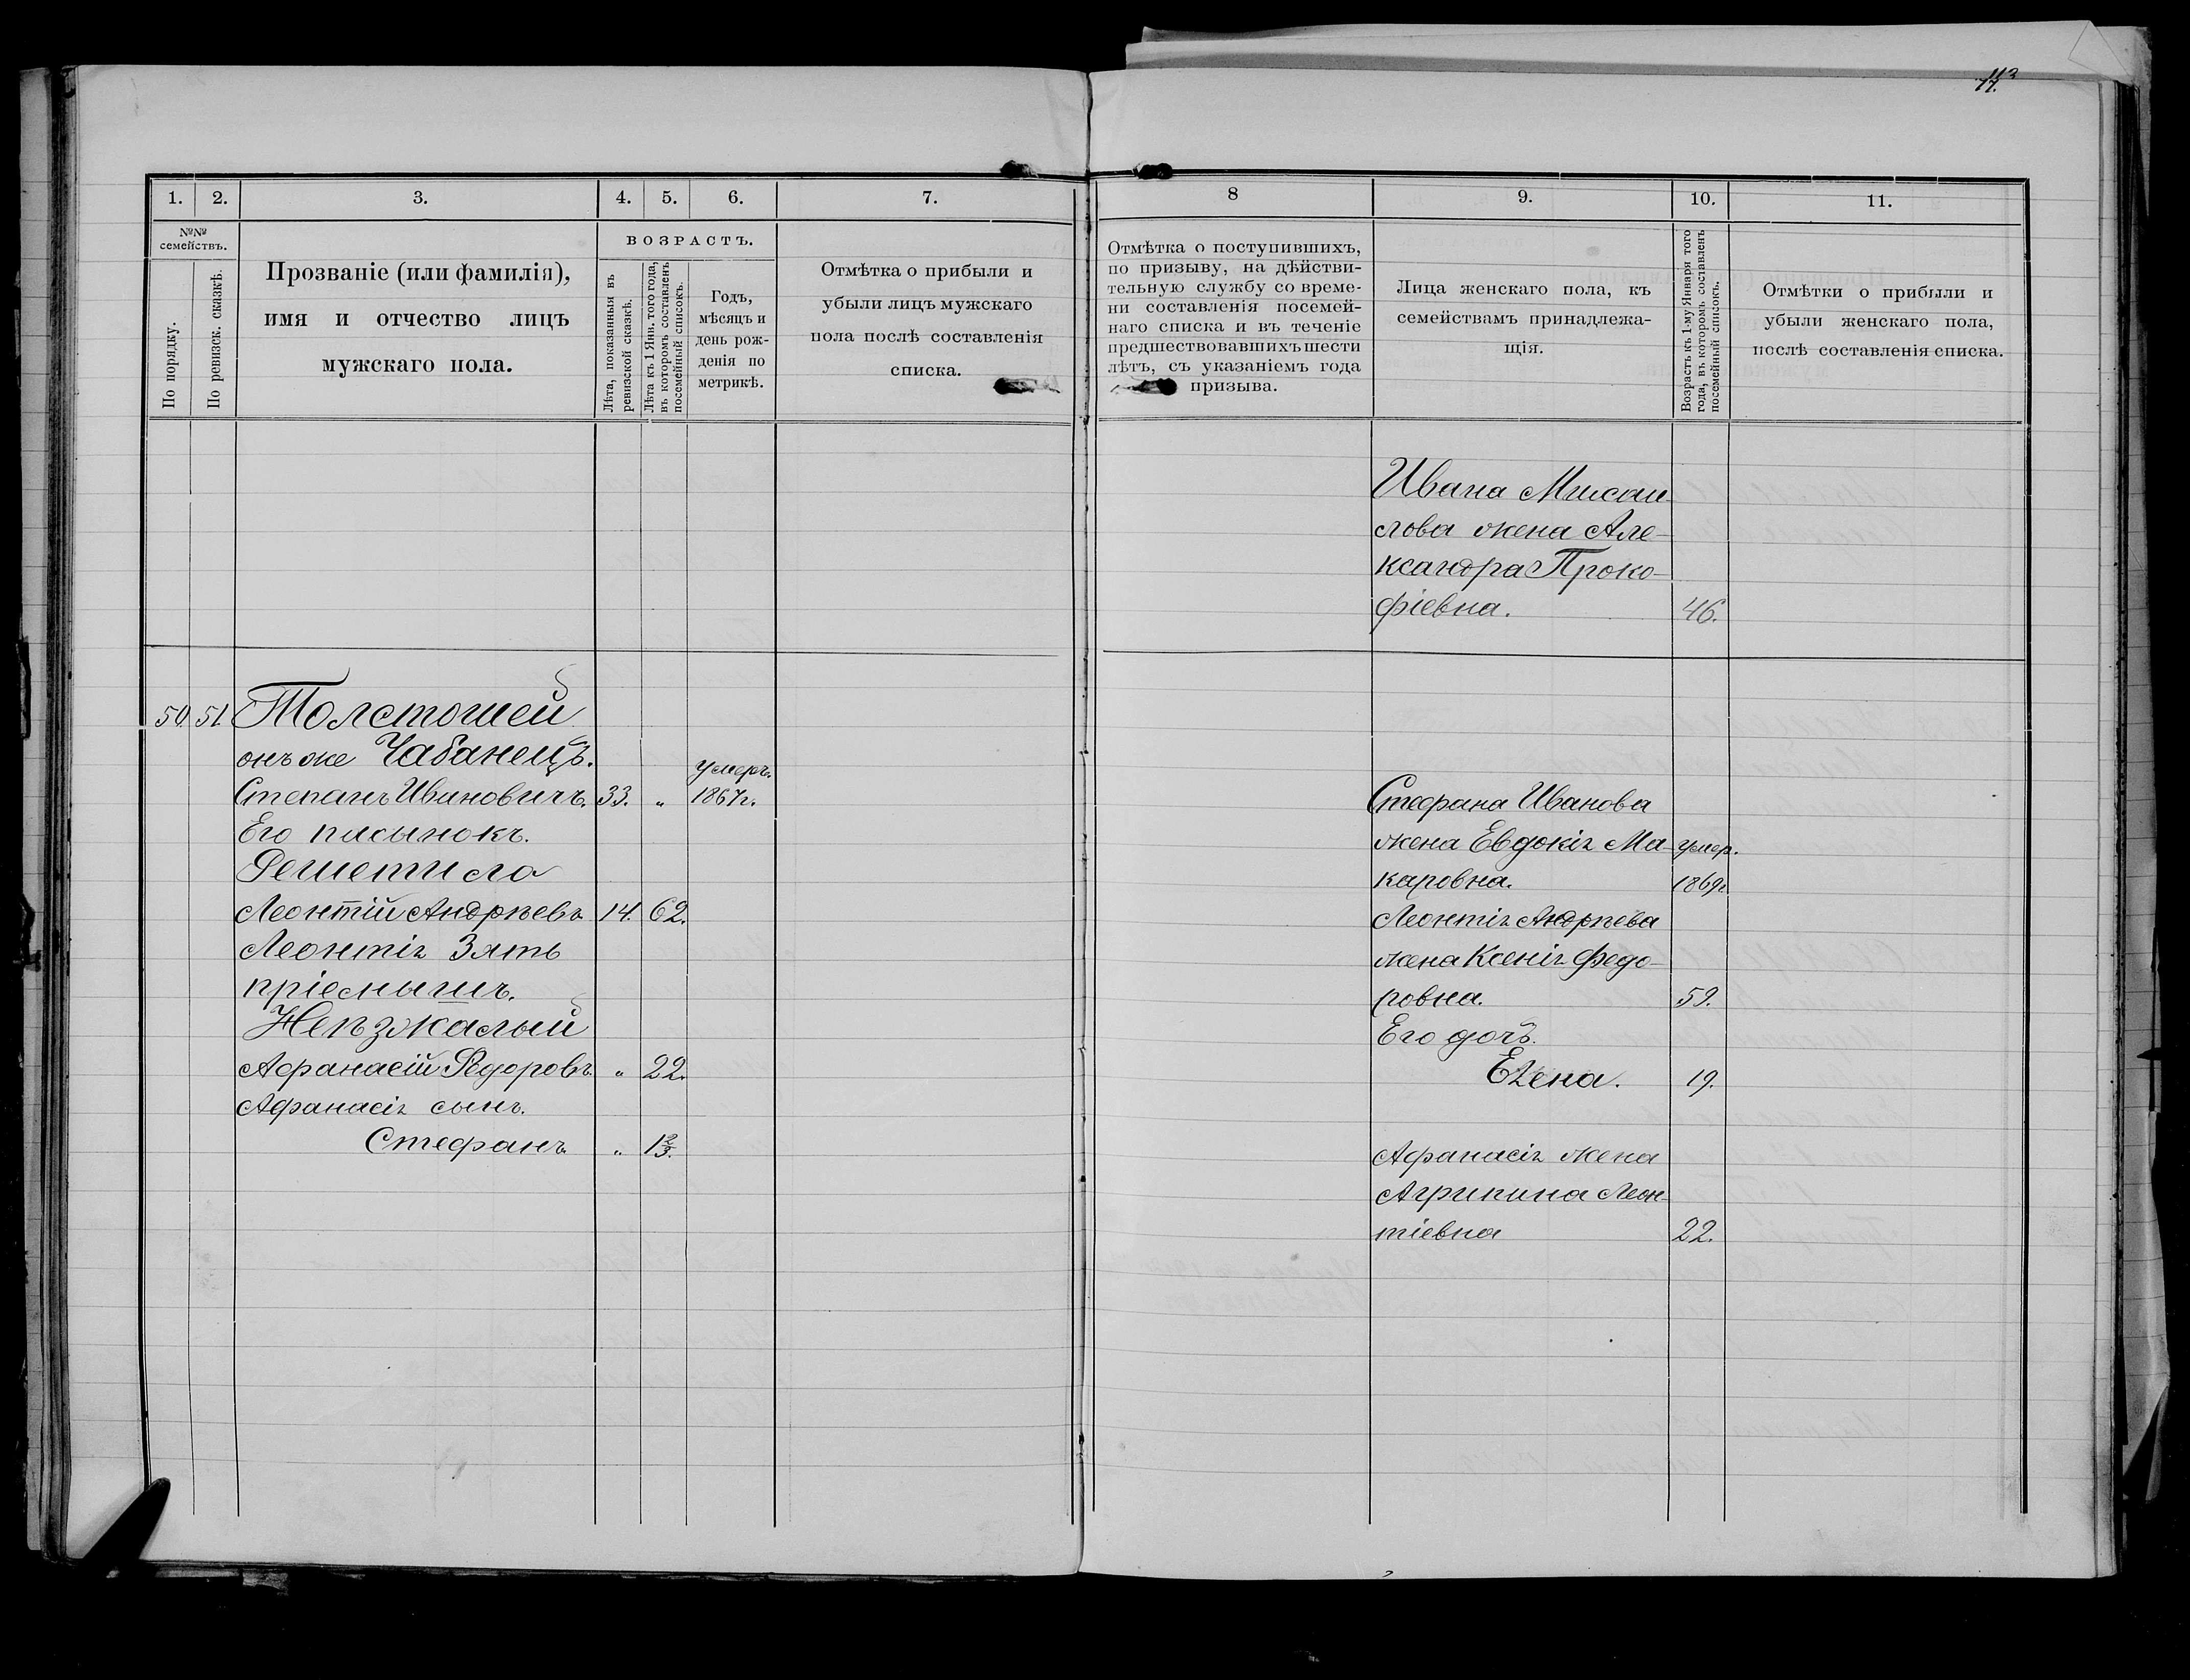 113
77.
1. 2. 3. 4. 5. 6. 7.
№№ семействъ.
По порядку.
По ревизск. сказкѣ.
Прозваніе (или фамилія),
имя и отчество лицъ
мужскаго пола.
ВОЗРАСТЪ.
Лѣта, показанныя въ
ревизской сказкѣ.
Лѣта къ 1 Янв. того года,
въ которомъ составленъ
посемейный списокъ.
Годъ,
мѣсяцъ и
день рож-
денія по
метрикѣ.
Отмѣтка о прибыли и
убыли лицъ мужскаго
пола послѣ составленія
списка.
50. 51. Толстошей
онъ же Чабанецъ.
умеръ.
Степанъ Ивановичъ. 33. „ 1867г.
Его пасынокъ.
Решетило
Леонтій Андрѣевъ 14. 62.
Леонтія Зять
пріемышъ.
Непзжалый
Афанасій Федоровъ „ 22.
Афанасія сынъ.
Стефанъ „ 1 2/3.
8 9. 10. 11.
Отмѣтка о поступившихъ,
по призыву, на дѣйстви-
тельную службу со време-
ни составленія посемей-
наго списка и въ теченіе
предшествовавшихъ шести
лѣтъ, съ указаніемъ года
призыва.
Лица женскаго пола, къ
семействамъ принадлежа-
щія.
Возрастъ къ 1-му Января того
года, въ которомъ составленъ
посемейный списокъ.
Отмѣтки о прибыли и
убыли женскаго пола,
послѣ составленія списка.
Ивана Мисаи
лова жена Але-
ксандра Проко-
фіевна. 46.
Стефана Иванова
жена Евдокія Ма- умер.
каровна. 1869г
Леонтія Андрѣева
жена Ксенія Федо-
ровна. 59.
Его дочь.
Елена. 19.
Афанасія жена
Агрипина Леон-
тіевна 22.